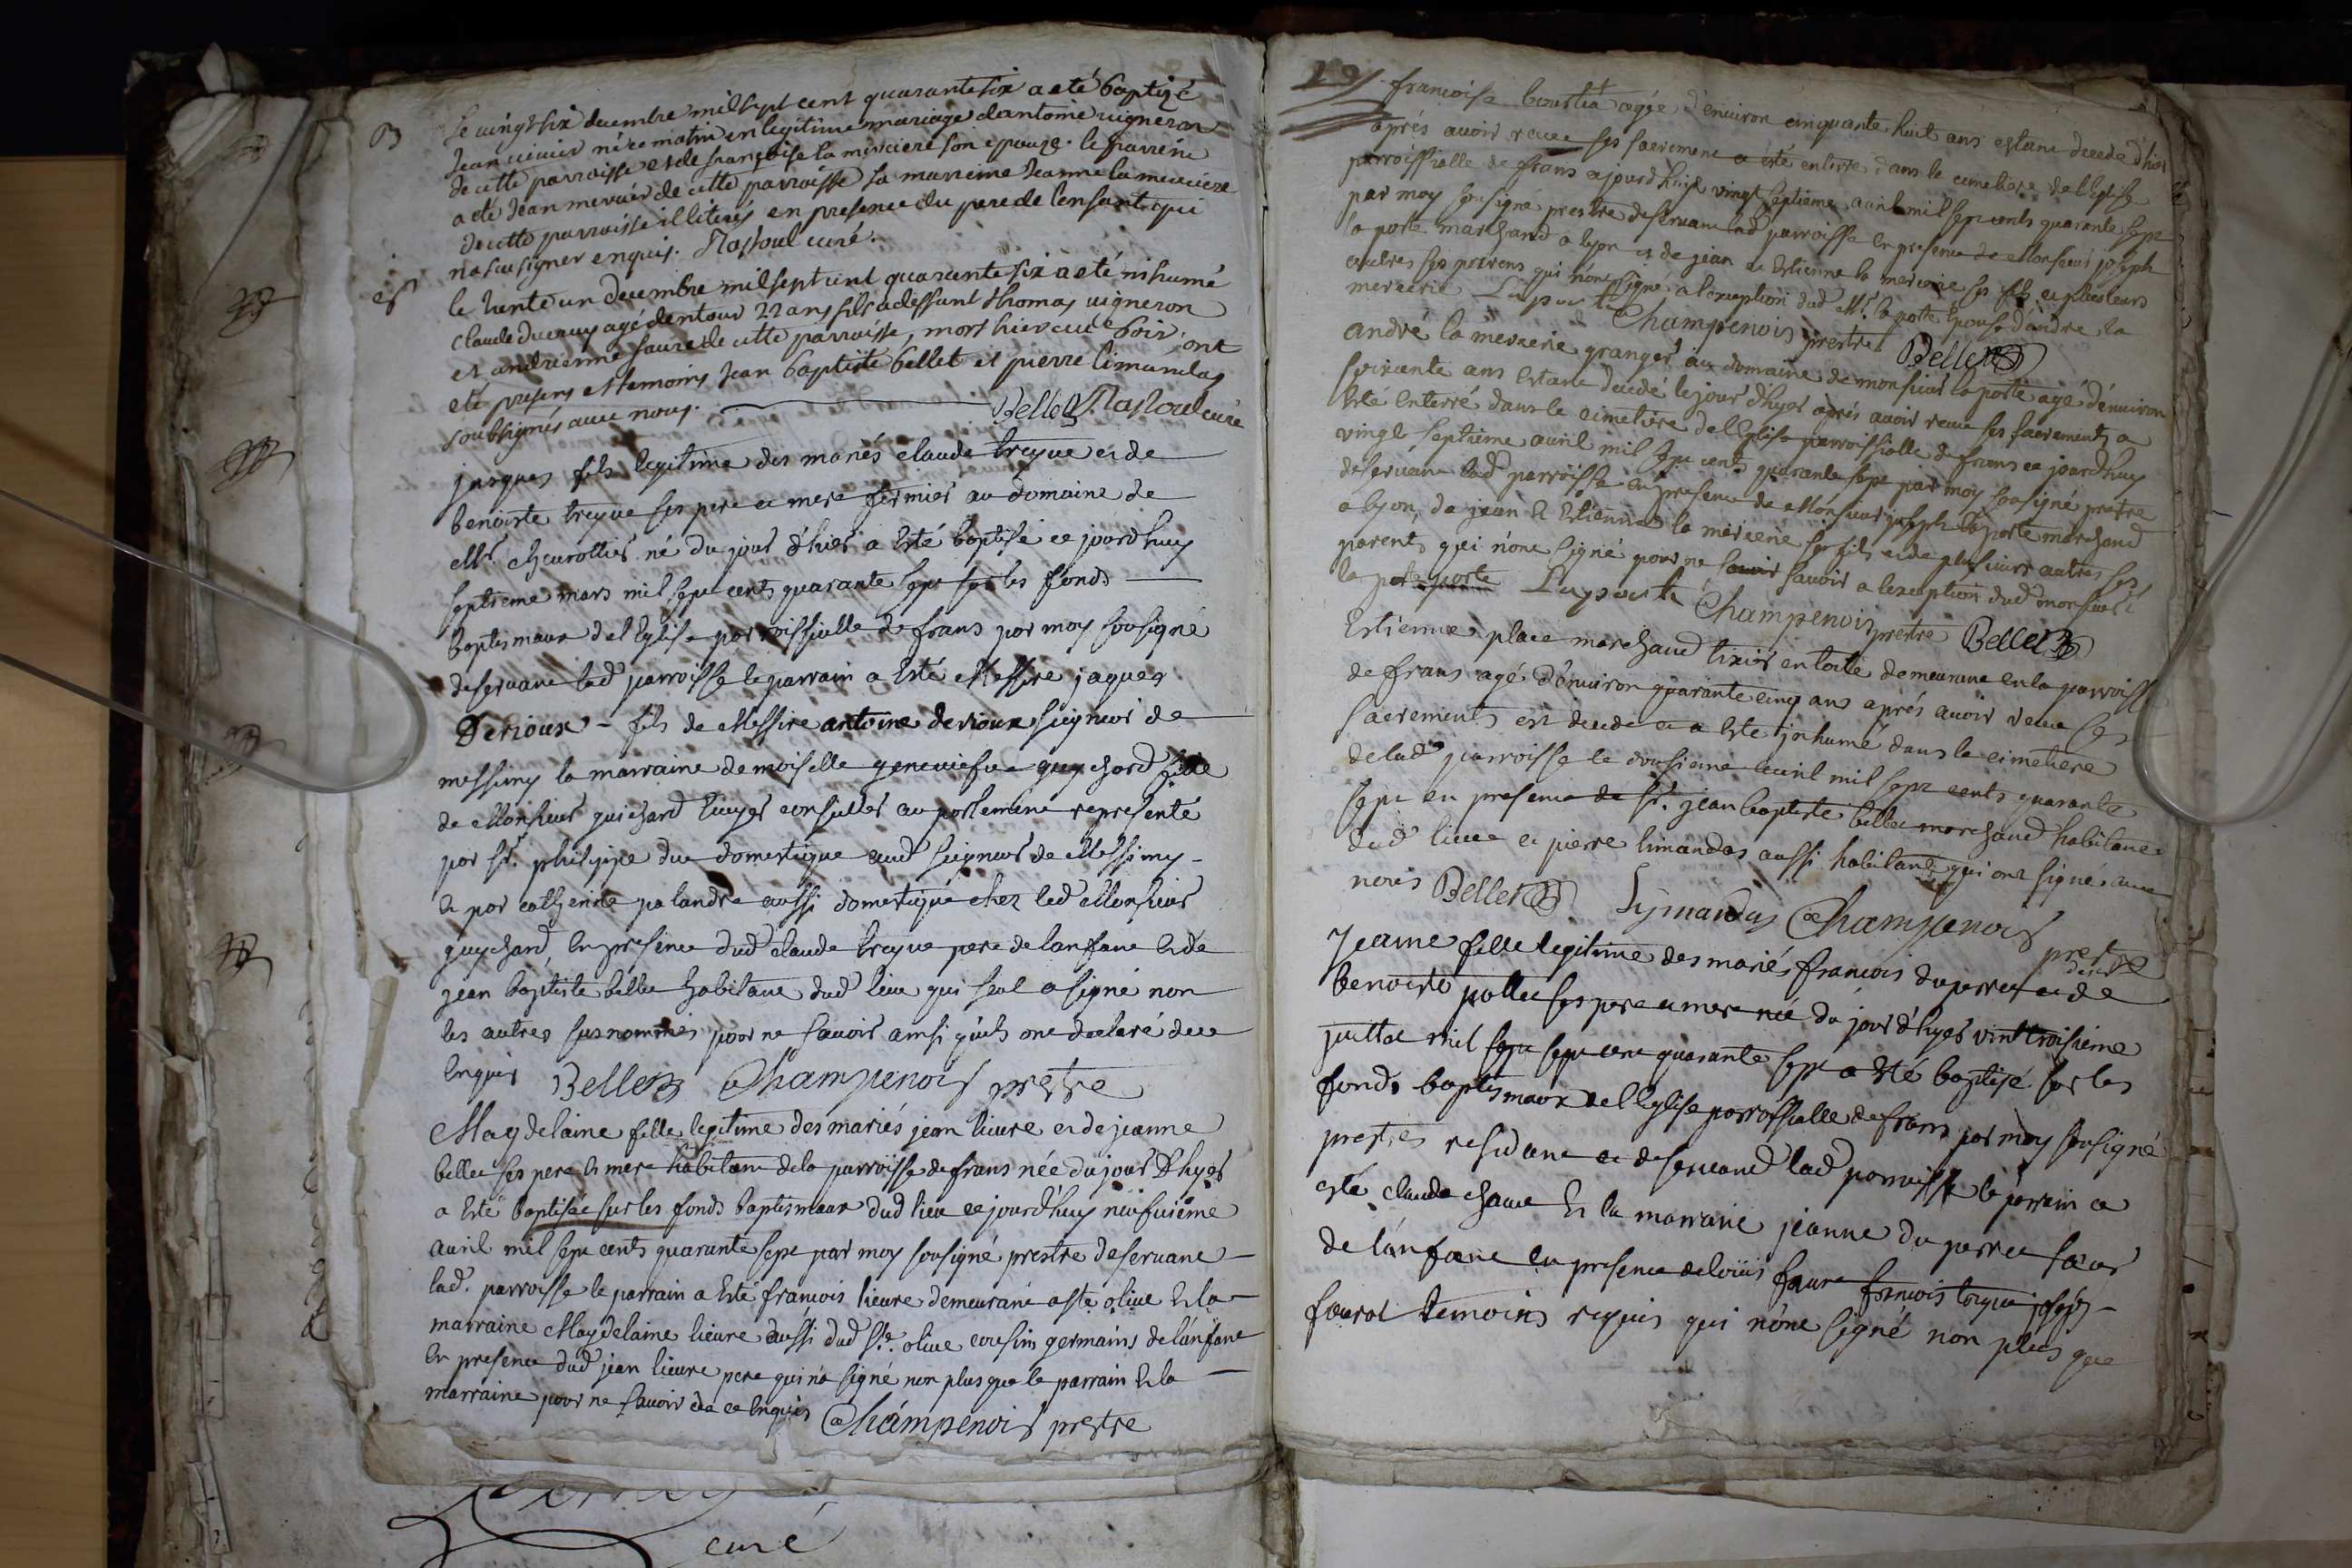 B
le vingt six decembre mil sept cent quarante six a eté baptizé
Jean né ce matin en legitime mariage dantoine vigneron
de cette parroisse et de françoise la merciere son epouze. le parrein
a eté Jean mercier de cette parroisse la marreine Jeanne la merciere
de cette parroisse illiterés en presence du pere de l'enfant qui
na sçu signer enquis. curé.
le trente un decembre mil sept cent quarante six a eté inhumé
claude agé dentour 22 ans fils a deffunt thomas vigneron
et andrienne faure de cette parroisse, mort hier au soir, ont
eté presens et temoins Jean baptiste bellet et pierre limandas
soubsignés avec nous. Bellet curé
jasques fils legitime des mariés claude treyve et de
benoiste treyve ses pere et mere fermier au domaine de
Mr. né du jour d'hier a esté baptisé ce jourdhuy
septieme mars mil sept cents quarante sept sur les fonds
baptismaux de l'Eglise parroissialle de frans par moy sousigné
deservant lad parroisse le parrain a esté Messire jaques
Derioux - fils de Messire antoine derioux seigneur de
messimy la marraine demoiselle geneviefve guychard fille
de Monsieur guichard Ecuyer conseiller au parlement representé
par Sr. philippe duc domestique aud seigneur de Messimy -
et par catherine palandre aussi domestique chez led Monsieur
guychard, en presence dud claude treyve pere de l'anfant et de
jean baptiste bellet habitant dud lieu qui seul a signé non
les autres susnommés pour ne savoir ainsi quils ont declaré de ce
enquis Bellet Champenois prestre
Magdelaine fille legitime des mariés jean lieure et de jeanne
bellet ses pere et mere habitant de la parroisse de frans née du jour d'hyer
a esté baptisée sur les fonds baptismaux dud lieu ce jourd'huy neufvieme
avril mil sept cents quarante sept par moy sousigné prestre deservant
lad. parroisse le parrain a esté francois lieure demeurant a ste olive et la
marraine Magdelaine lieure aussi dud Ste. olive cousins germains de l'anfant
en presence dud jean lieure pere qui n'a signé non plus que le parrain et la
marraine pour ne savoir de ce enquis Champenois prestre
curé
francoise agée d'environ cinquante huit ans estant decedé d'hier
après avoir receu ses sacrement a esté enterré dans le cimetiere de l'Eglise
parroissialle de frans ajourd'huy vingt septieme avril mil sept cents quarante sept
par moy sousigné prestre deservant lad parroisse en presence de Monsieur joseph
la porte marchand a lyon et de jean et Estienne la mercerie ses fils et plusieurs
autres ses parens qui n'ont signé a l'exeption dud Mr. la porte Epouse d'andré la
mercerie Laporte Champenois prestre Bellet
andré la mercerie granger au domaine de monsieur la porte agé d'environ
soixante ans estant decedé le jour d'hyer après avoir receu ses sacrements a
esté enterré dans le cimetiere de l'Eglise parroissialle de frans ce jourdhuy
vingt septieme avril mil sept cents quarante sept par moy sousigné prestre
deservant lad parroisse en presence de Monsieur joseph laporte marchand
a lyon, de jean et Estienne la mercerie ses fils et de plusieurs autres ses
parents qui n'ont signé pour ne savoir savoir a l'exeption dud monsieur
la porte porte Laporte Champenois prestre Bellet
Estienne place marchand tixier en toille demeurant en la parroisse
de frans agé d'environ quarante cinq ans après avoir receu ses
sacrements est decedé et a esté inhumé dans le cimetiere
de lad parroisse le avril mil sept cents quarante
sept en presence de Sr. jean baptiste bellet marchand habitant
dud lieu et pierre limandas aussi habitant qui ont signés avec
nous Bellet Lymandas Champenois prestre
Jeanne fille legitime des mariés francois duperret et de
benoite pollet ses pere et mere née du jour d'hyer vint troisieme
juillet mil sept sept cent quarante sept a esté baptisé sur les
fonds baptismaux de l'Eglise parroissialle de frans par moy sousigné
prestre residant et deservand lad parroisse le parrain a
esté claude et la marraine jeanne du perret sœur
de l'anfant en presence de louis faure francois joseph
temoins requis qui n'ont signé non plus que